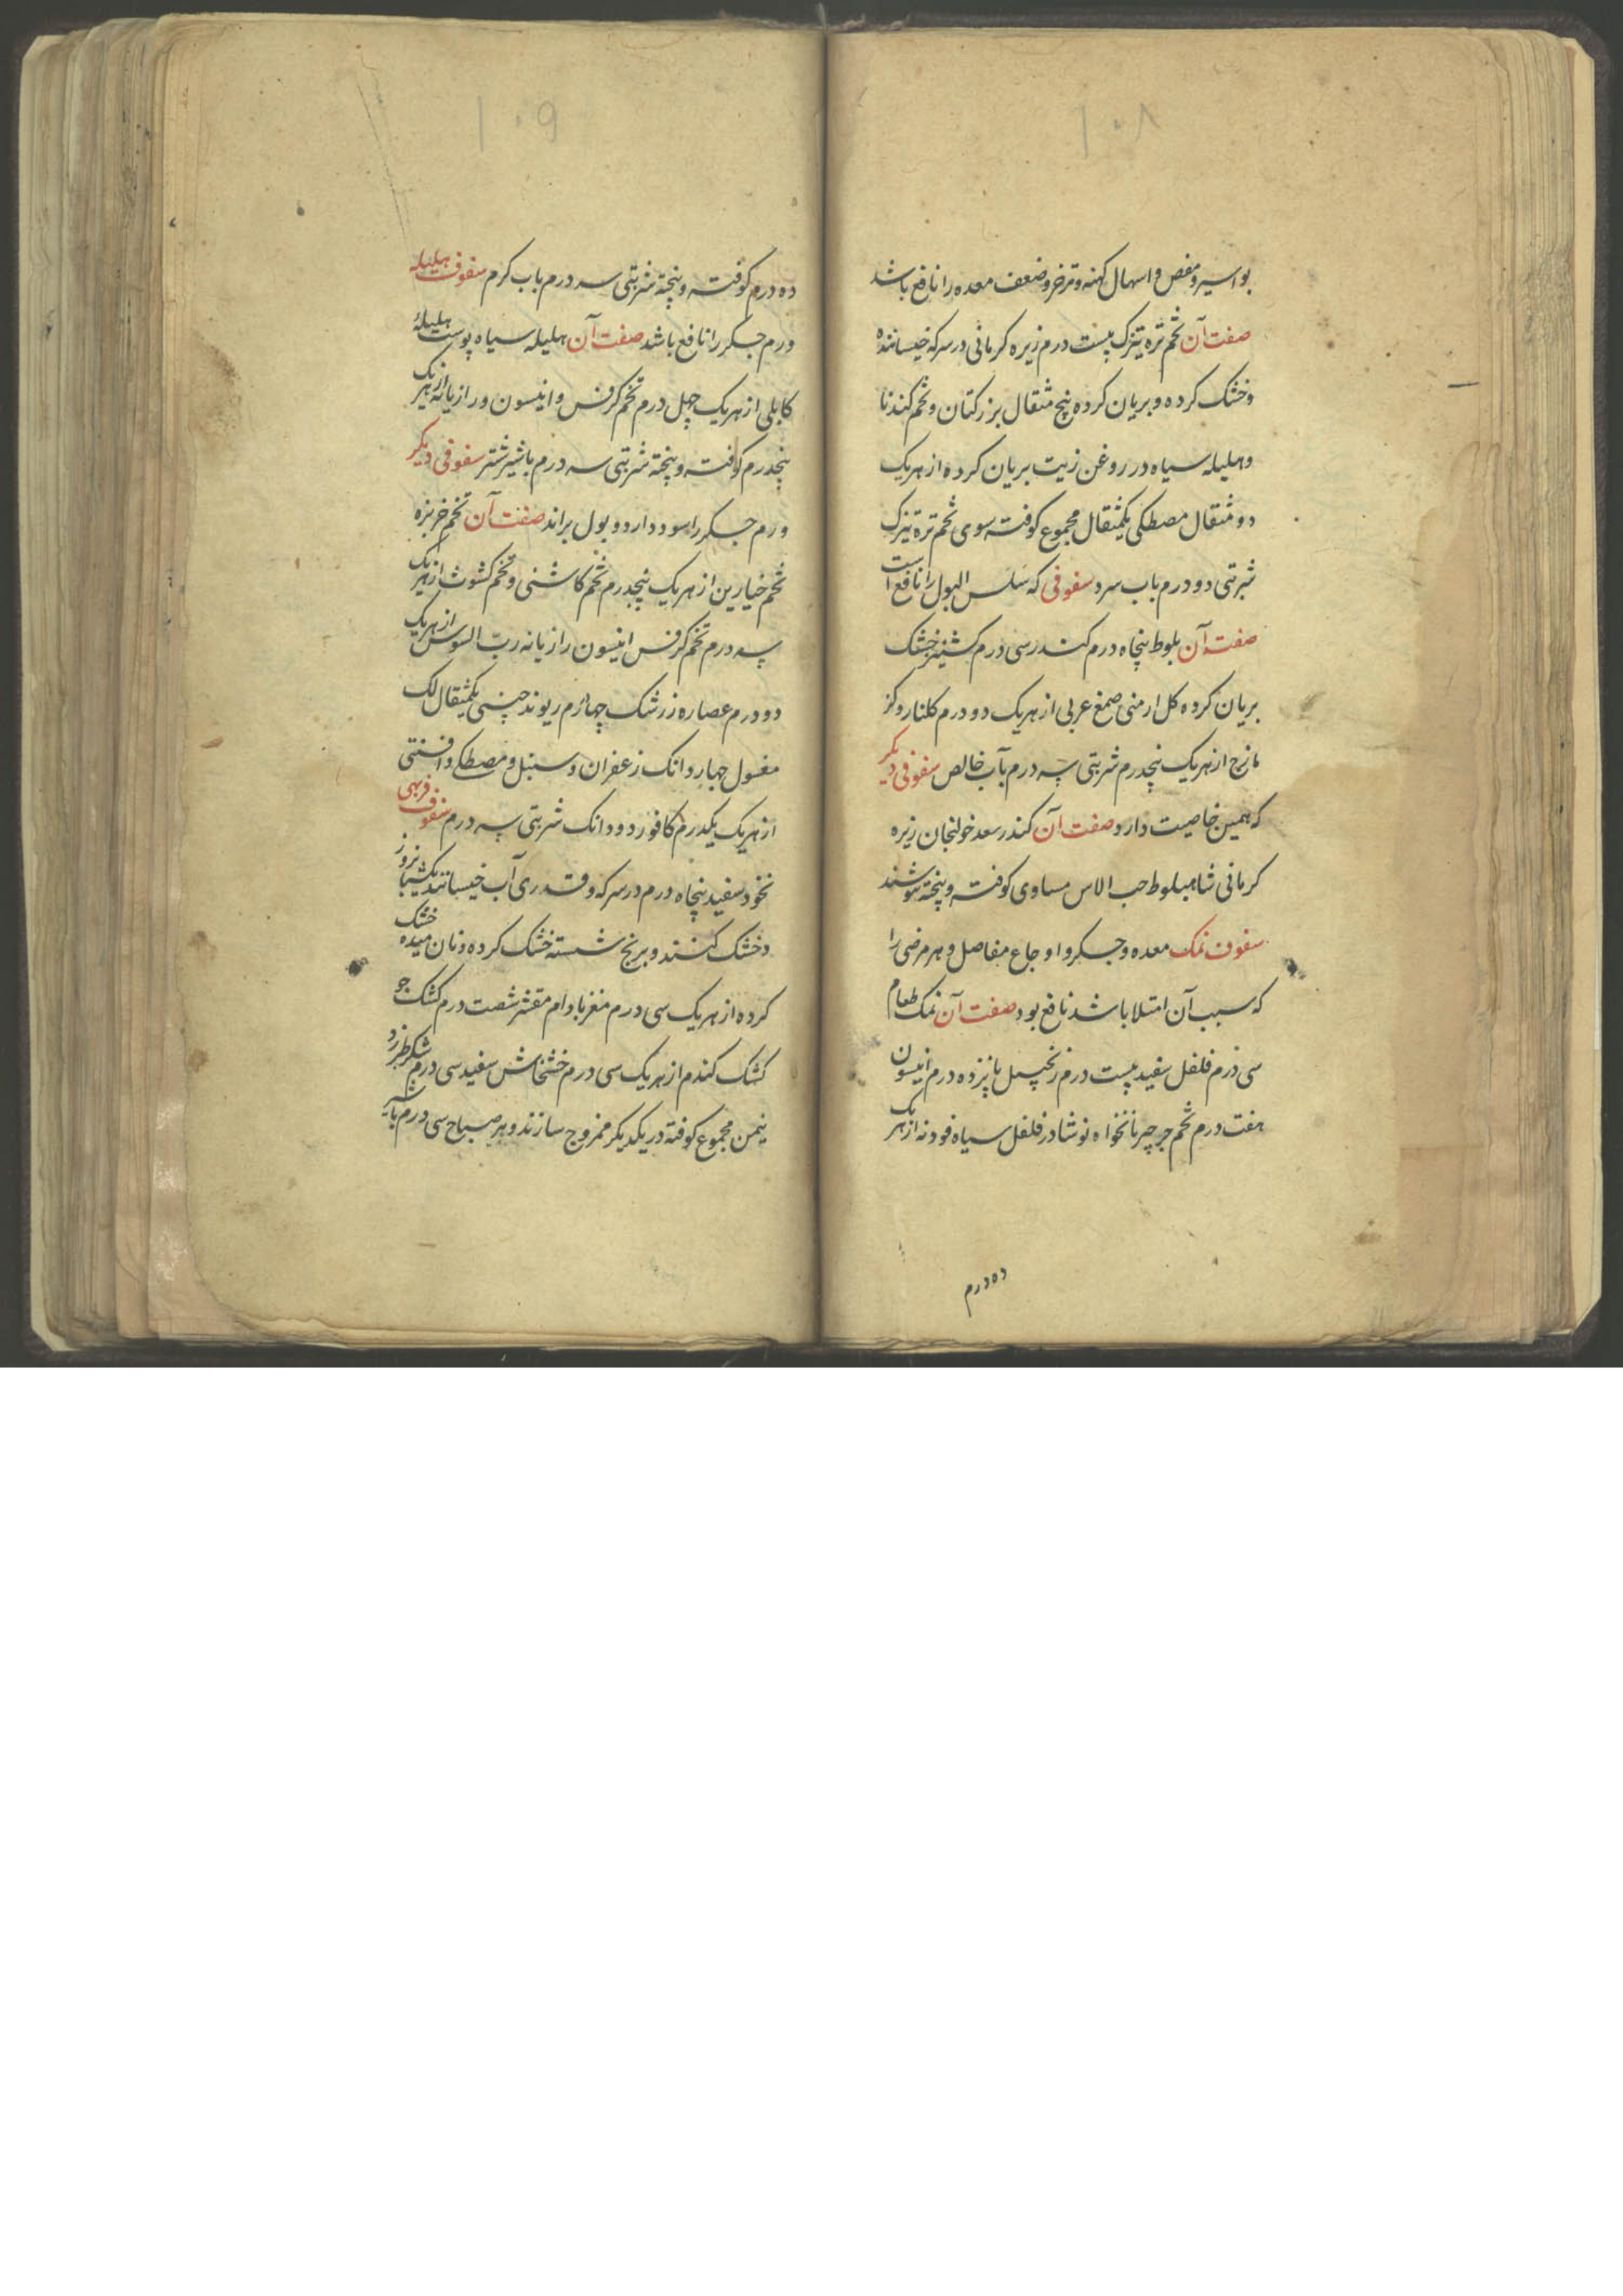 ۱۰۸
بواسیر و مغص و اسهال کهنه و تزخر و ضعف معده را نافع باشد
صفت آن تخم تره تیزک بیست درم زیره کرمانی در سرکه خیسانده
و خشک کرده و بریان کرده پنج مثقال بزرکتان و تخم کندنا
و هلیله سیاه در روغن زیت بریان کرده از هر یک
دو مثقال مصطکی یکمثقال مجموع کوفته سوی تخم تره تیزک
شربتی دو درم باب سرد سفوفی که سلس البول را نافع است
صفت آن بلوط پنجاه درم کندر سی درم کشنیز خشک
بریان کرده کل ارمنی صمغ عربی از هر یک دو درم کلنار و کز
مازج از هر یک پنجدرم شربتی سه درم بآب خالص سفوفی دیکر
که همین خاصیت دارد صفت آن کندر سعد خولنجان زیره
کرمانی شاهبلوط حب الاس مساوی کوفته و پنجته
سفوف نمک معده و جکر و اوجاع مفاصل و هر مرضی را
که سبب آن امتلا باشد نافع بود صفت آن نمک طعام
سی درم فلفل سفید بیست درم زنجبیل پانزده درم انیسون
هفت درم تخم جرجیر نانخواه نوشادر فلفل سیاه فودنه از هر یک
ده درم
۱۰۹
ده درم کوفته و پنجته شربتی سه درم باب کرم سفوف هلیله
ورم جکر را نافع باشد صفت آن هلیله سیاه پوست هلیلهٔ
کابلی از هر یک چهل درم تخم کرفس و انیسون و رازیانه از هر یک
پنجدرم کوفته و پنجته شربتی سه درم باشیر شتر سفوفی دیکر
ورم جکر را سود دارد و بول براند صفت آن تخم خربزه
تخم خیارین از هر یک پنجدرم تخم کاسنی و تخم کشوث از هر یک
سه درم تخم کرفس انیسون رازیانه رب السوس از هر یک
دو درم عصاره زرشک چهارم ریوند چینی یکمثقال لک
مغسول چهار دانک زعفران و سنبل و مصطکی و افسنتی
از هر یک یکدرم کافور دو دانک شربتی سه درم سفوف فربهی
نخود سفید پنجاه درم در سرکه و قدری آب خیسانند یکشبانروز
و خشک کنند و برنج شسته خشک کرده و نان میده خشک
کرده از هر یک سی درم مغز بادام مقشر شصت درم کشک جو
کشک کندم از هر یک سی درم خشخاش سفید سی درم شکر طبرزد
نیمن مجموع کوفته در یکدیکر ممزوج سازند و هر صباح سی درم